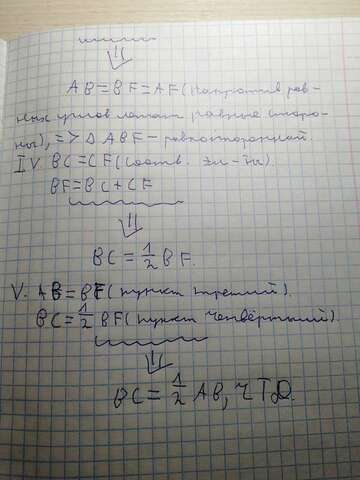 ⇓
AB=BF=AF(Напротив рав-
ных углов лежат равные сторо-
ны), => △ABF - равносторонний.
IV. BC=CF(соотв. эл-ты)
BF=BC+CF
⇓
BC=1/2 BF.
V. AB=BF(пункт третий).
BC=1/2 BF(пункт четвёртый).
⇓
BC=1/2 AB, ЧТД.